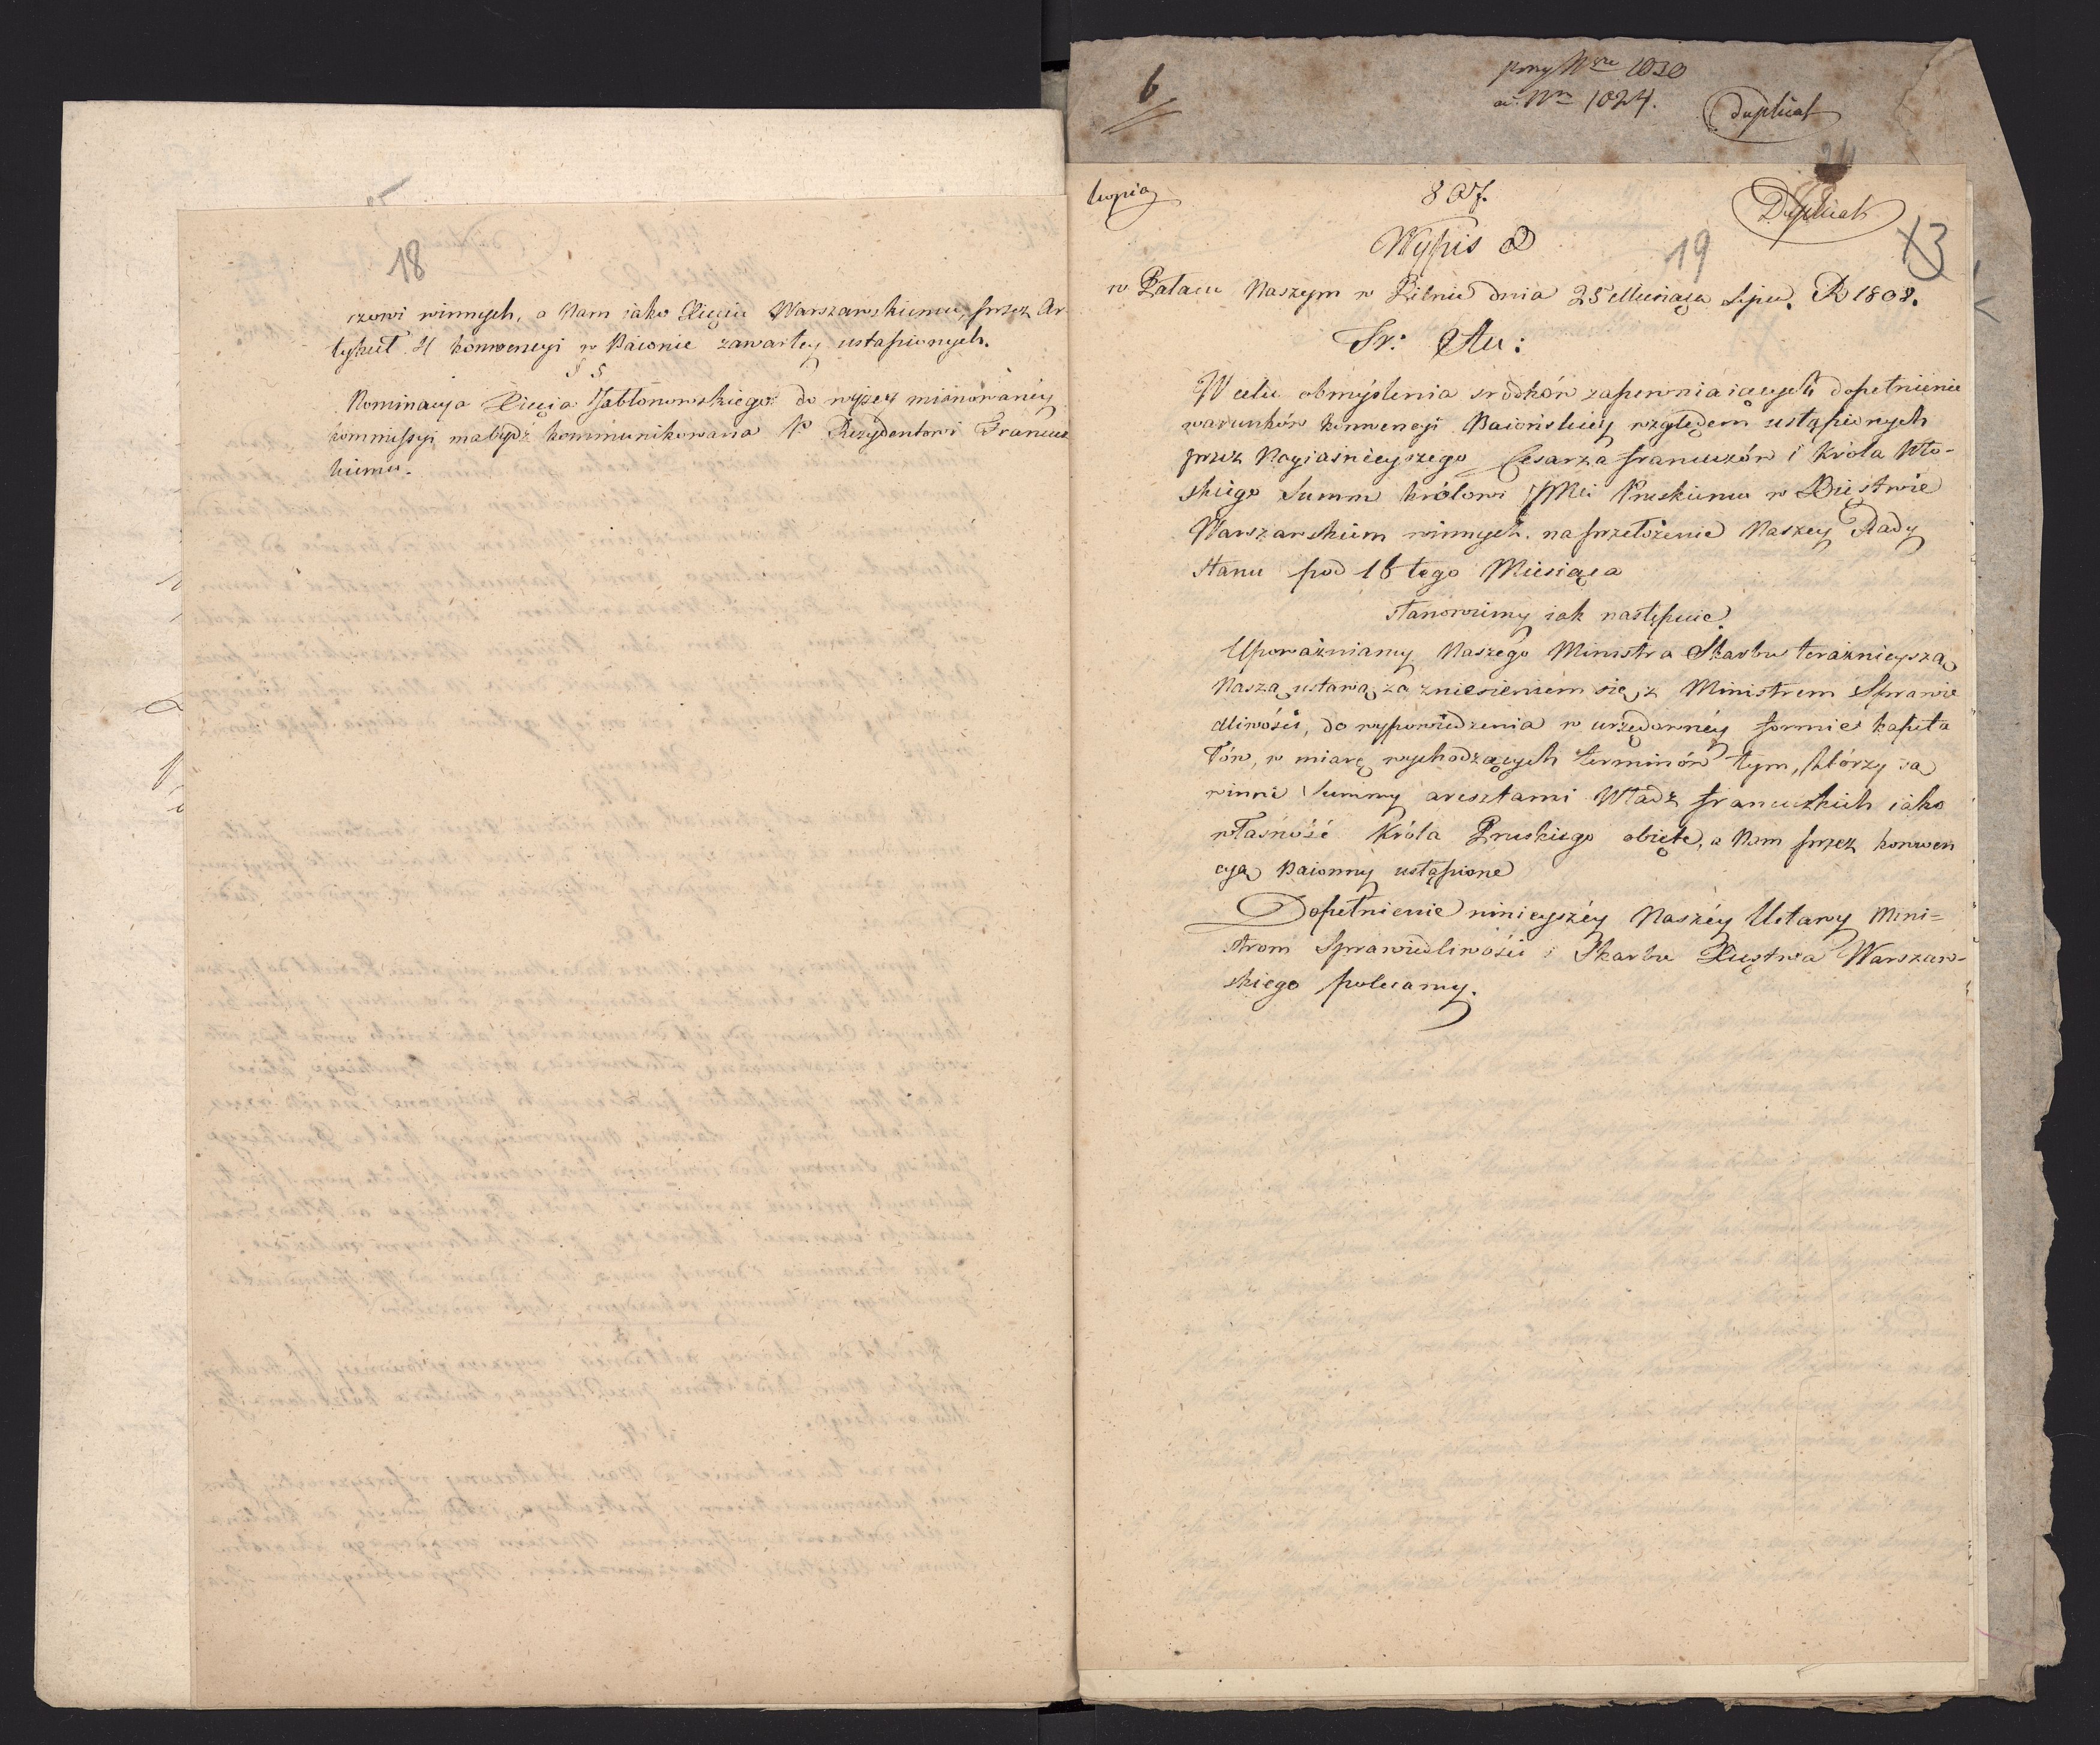 18
rzowi winnych, a Nam iako Xięciu Warszawskiemu, przez Ar
tykuł 4 konwencyi w Baionie zawartey ustąpionych.
§ 5
Nominacya Xięcia Jabłonowskiego do wyżey mianowanéy
kommissyi ma bydź kommunikowana P. Rezydentowi Francuz
kiemu.
6
przy Nrze 1030
ad Nrm 1024.
Duplicat
24
kopia
807.
Duplicat
Wypis
19
13
w Pałacu Naszym w Pilnie dnia 25 Miesiąca Lipca R 1808.
Fr: Au:
W celu obmyślenia srodków zapewniaiących dopełnienie
warunków konwencyi Baiońskiey względem ustąpionych
przez Nayiaśnieyszego Cesarza francuzów i Króla Wło-
skiego Summ królowi JMci Pruskiemu w Xięstwie
Warszawskiem winnych, na przełożenie Naszey Rady
Stanu pod 16 tego Miesiąca
stanowimy iak następuie
Upoważniamy Naszego Ministra Skarbu teraznieyszą
Naszą ustawą za zniesieniem się z Ministrem Sprawie
dliwości, do wypowiedzenia w urzędownéy formie kapita
łów, w miarę wychodzących terminów tym, którzy są
winni Summy aresztami Władz francuzkich iako
własność Króla Pruskiego obięte, a Nam przez konwen
cyą Baionny ustąpione
Dopełnienie ninieyszéy Naszéy Ustawy Mini=
strom Sprawiedliwości i Skarbu Xięstwa Warszaw-
skiego polecamy.